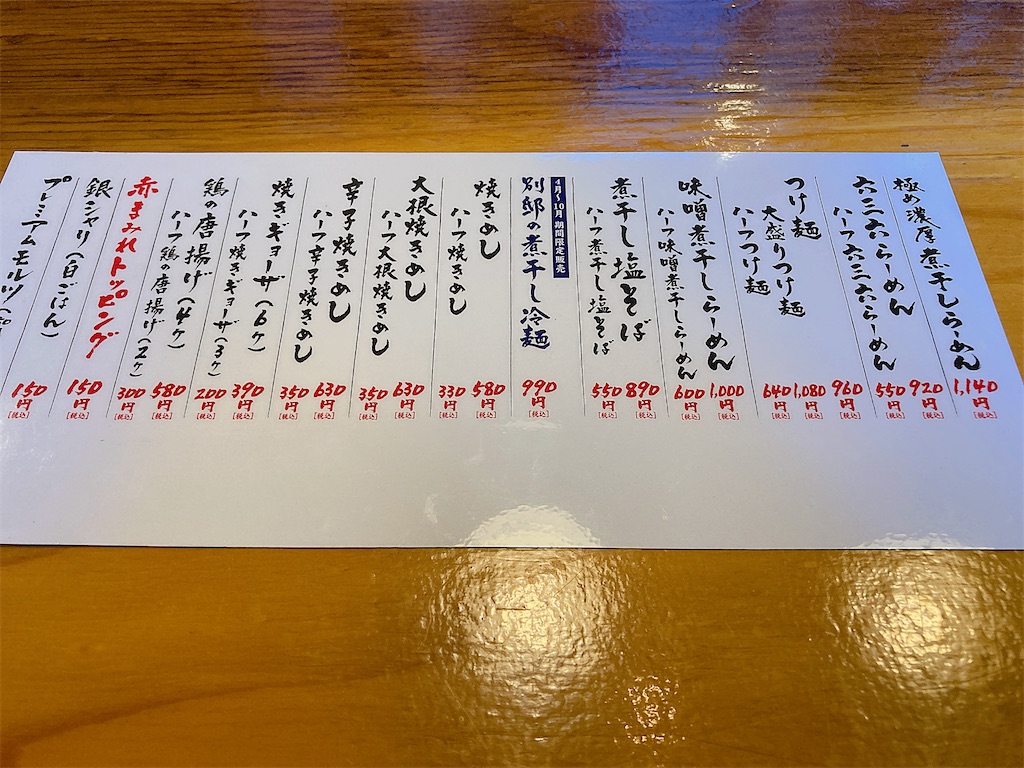 極め濃厚煮干しらーめん 1,140円[税込]
六三六らーめん 920円[税込]
ハーフ六三六らーめん 550円[税込]
つけ麺 960円[税込]
大盛りつけ麺 1,080円[税込]
ハーフつけ麺 640円[税込]
味噌煮干しらーめん 1,000円[税込]
ハーフ味噌煮干しらーめん 600円[税込]
煮干し塩そば 890円[税込]
ハーフ煮干し塩そば 550円[税込]
4月〜10月 期間限定販売
別邸の煮干し冷麺 990円[税込]
焼きめし 580円[税込]
ハーフ焼きめし 330円[税込]
大根焼きめし 630円[税込]
ハーフ大根焼きめし 350円[税込]
辛子焼きめし 630円[税込]
ハーフ辛子焼きめし 350円[税込]
焼きギョーザ(6ケ) 390円[税込]
ハーフ焼きギョーザ(3ケ) 200円[税込]
鶏の唐揚げ(4ケ) 580円[税込]
ハーフ鶏の唐揚げ(2ケ) 300円[税込]
赤まみれトッピング 150円[税込]
銀シャリ(白ごはん) 150円[税込]
プレミアムモルツ